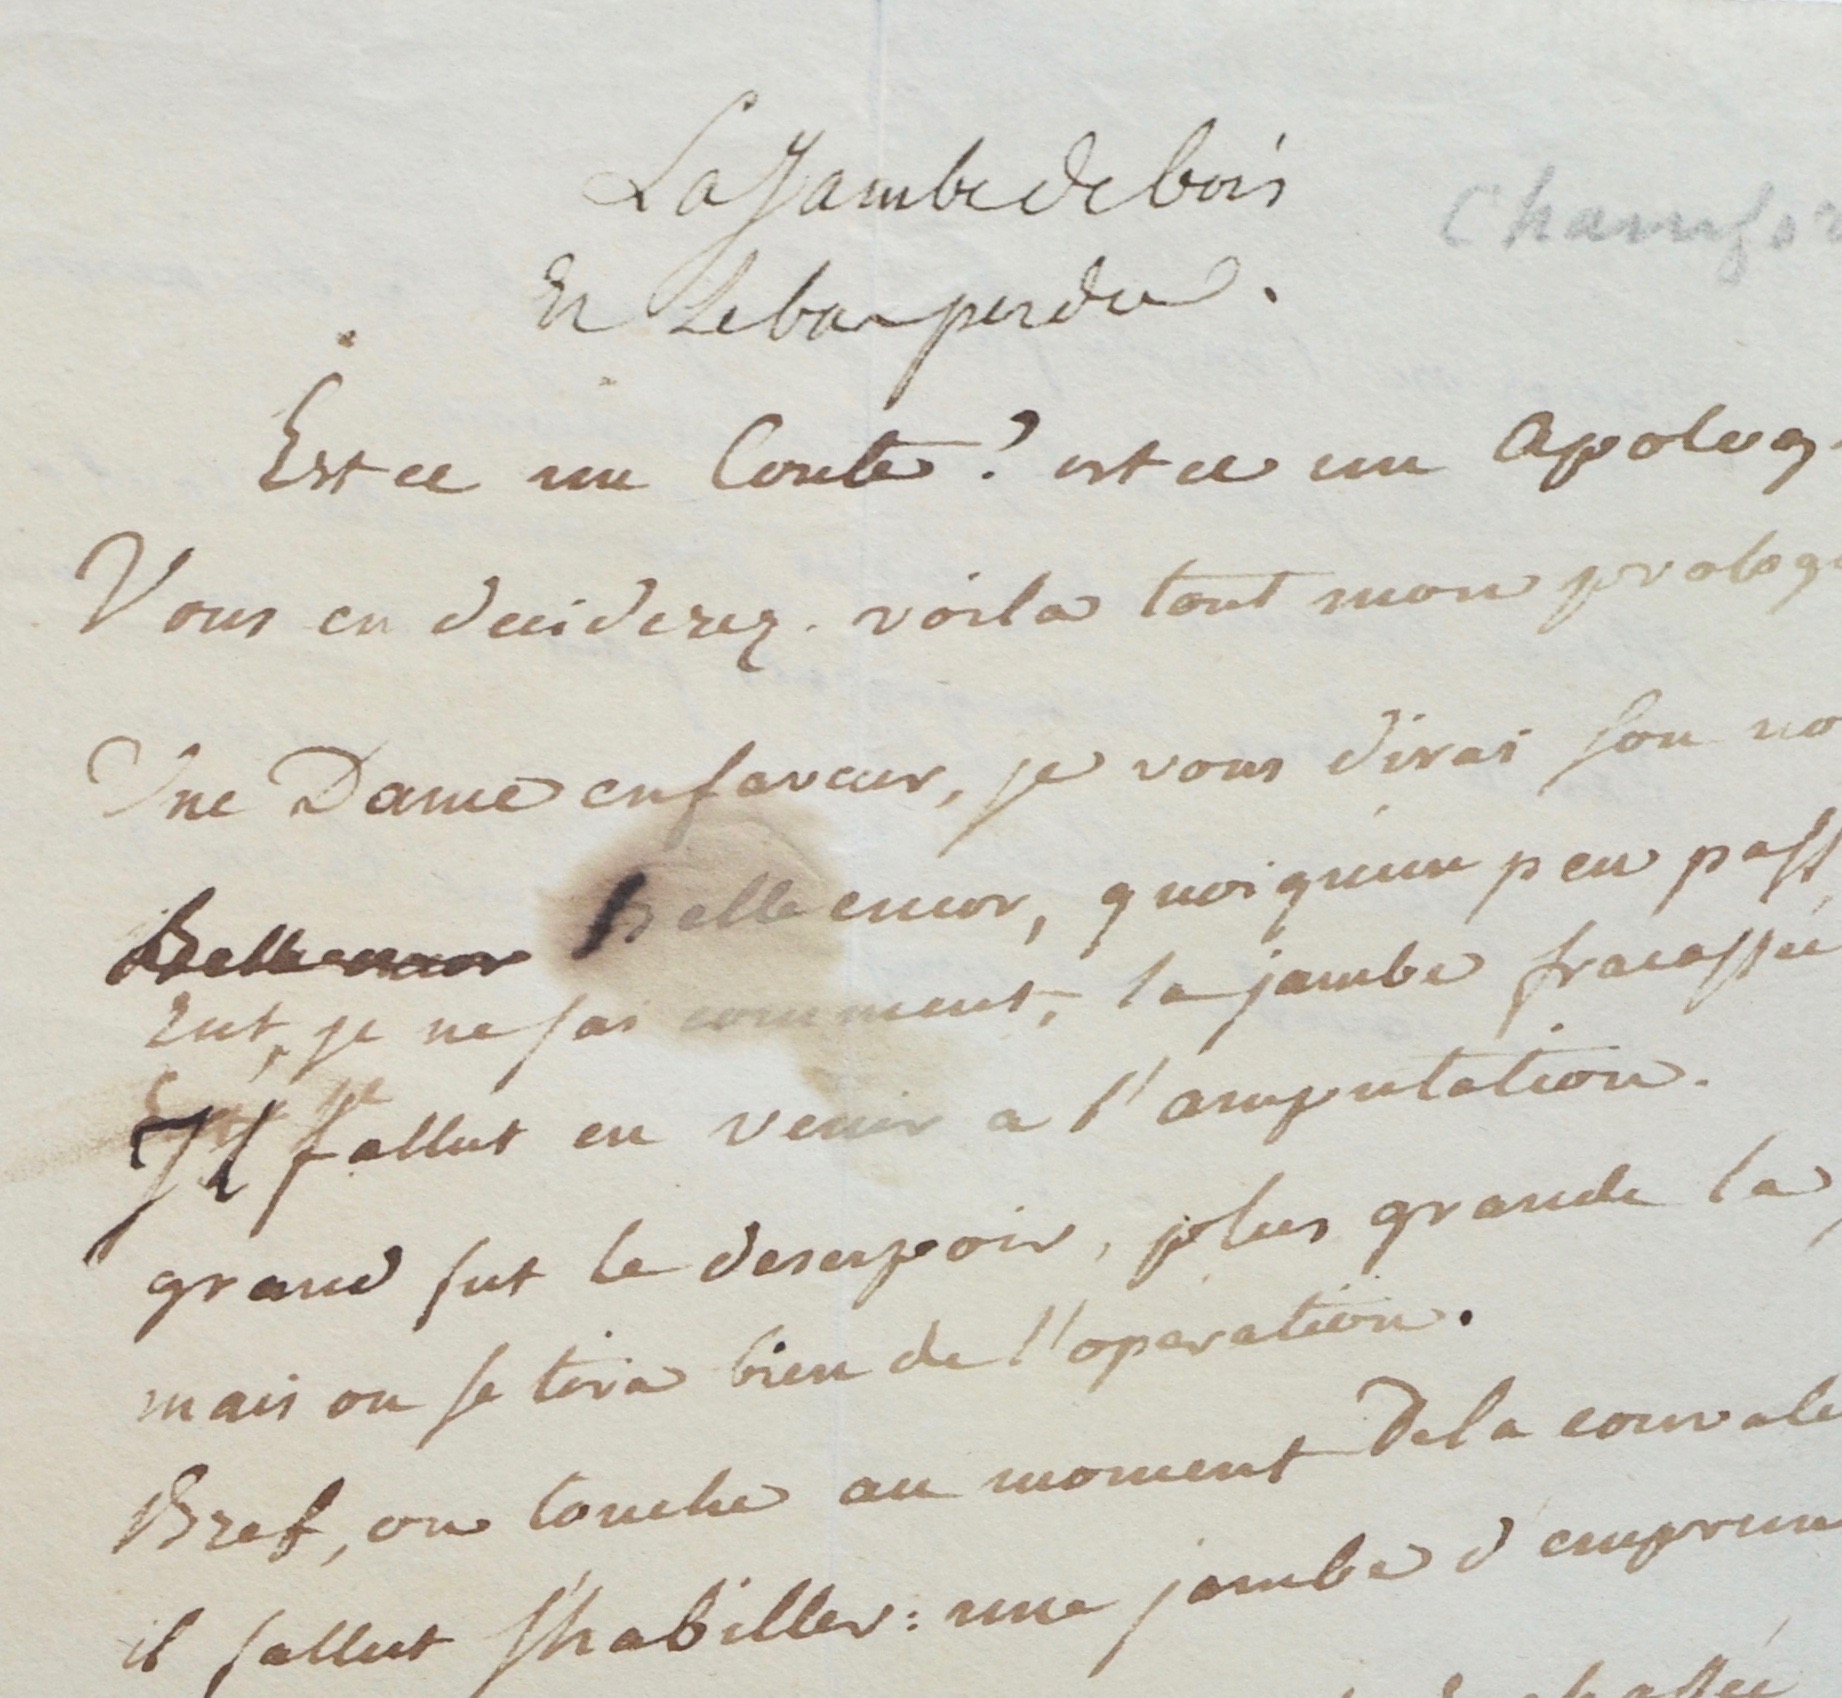 La Jambe de bois
Et Le bas perdu.
Chamfor
Est ce un Conte? est ce un Apolog
Vous en deciderez. voila tout mon prolog
Une Dame en faveur, je vous dirai son no
Belle encor Belle encor, quoiqu'un peu pass
Eut, je ne sai comment, la jambe fracassée
Il fallut en venir a l'amputation.
grand fut le desespoir, plus grande la
mais on se tira bien de l'operation.
Bref, on touche au moment De la convale
il fallut s'habiller: une jambe d'emprun